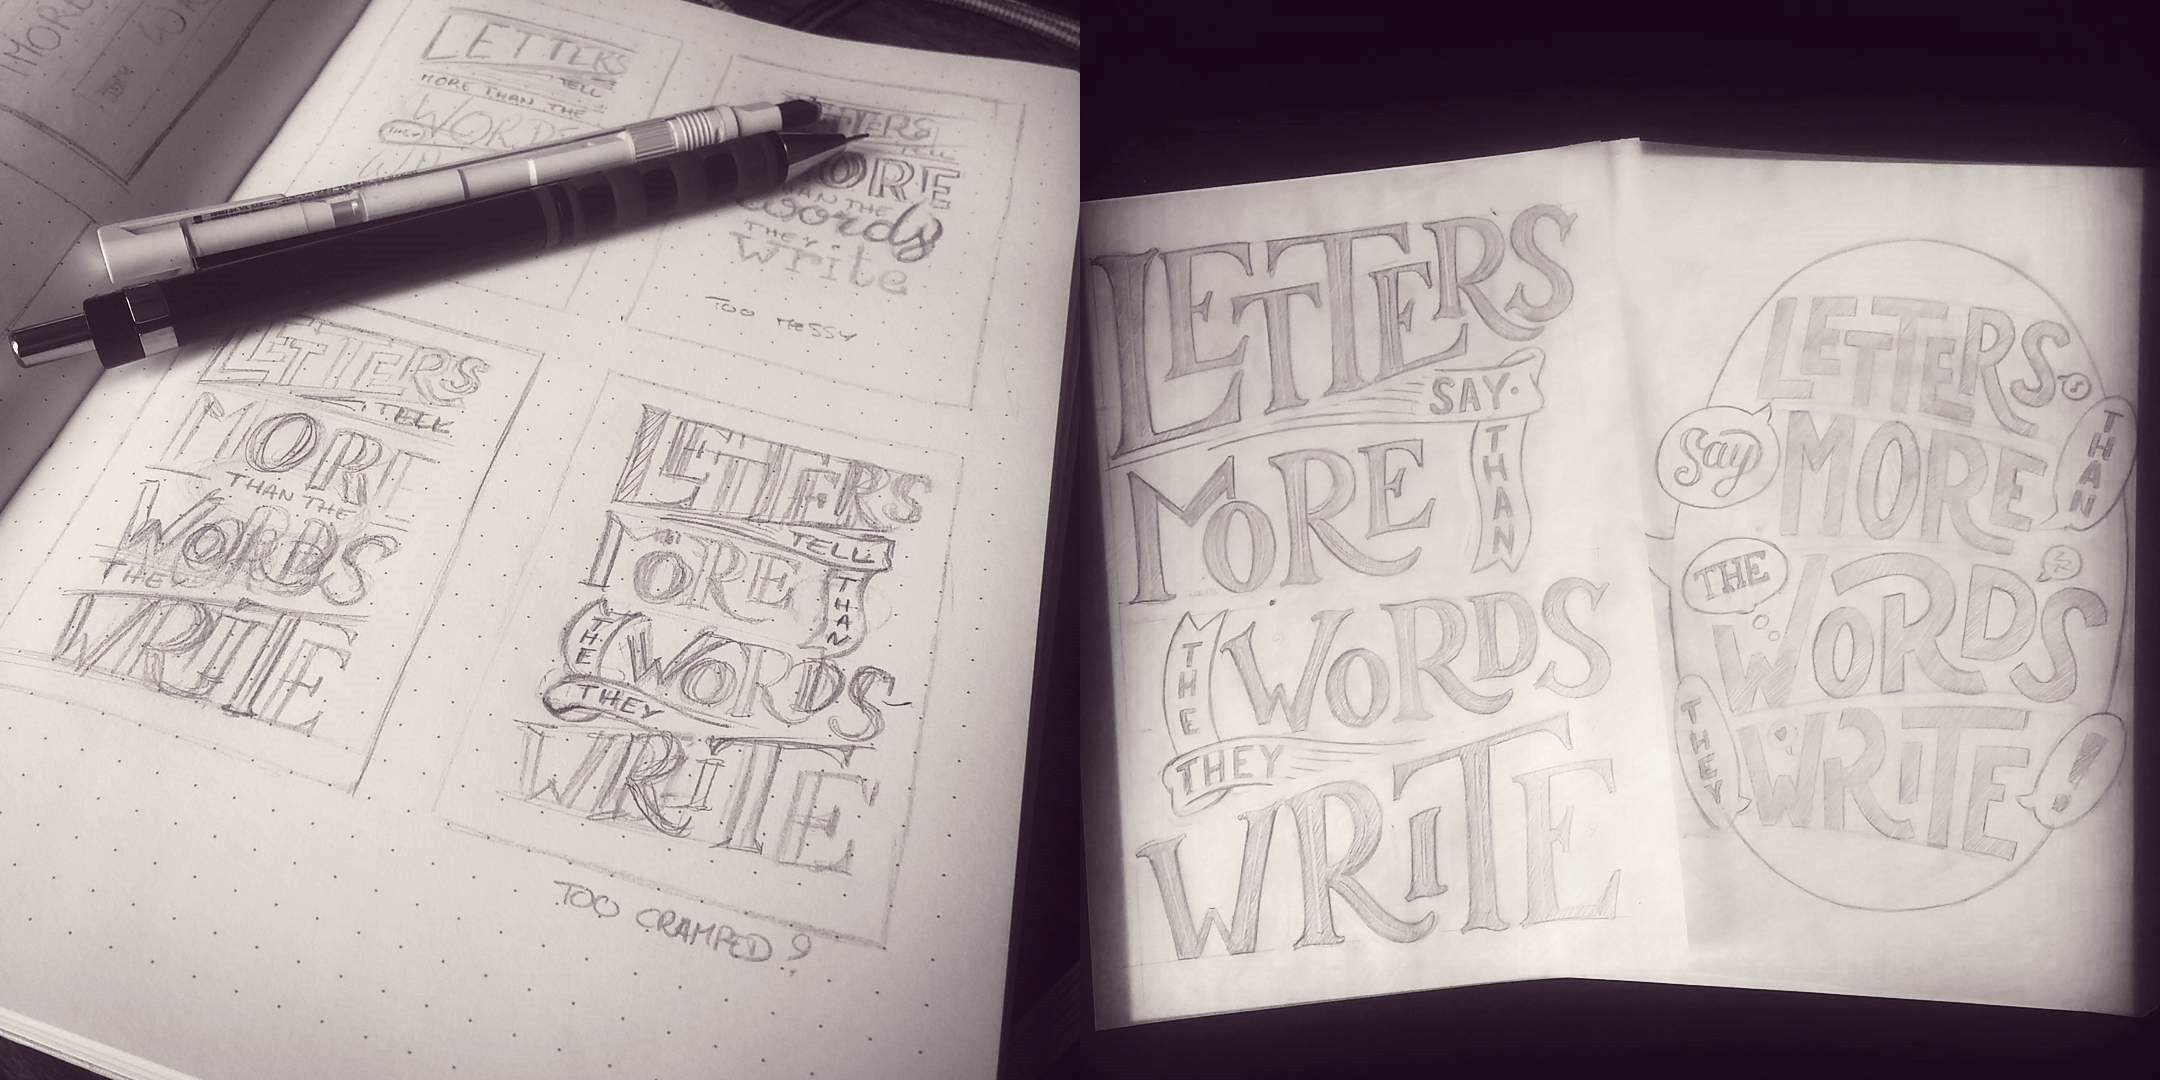 MORE
LETTERS
TELL
MORE THAN THE
WORDS
THEY
TELL
MORE
THAN THE
words
THEY
write
TOO MESSY
LETTERS
TELL
MORE
THAN THE
WORDS
THEY
WRITE
LETTERS
TELL
MORE
THAN
THE
WORDS
THEY
WRiTE
TOO CRAMPED?
LETTERS
SAY
MORE
THAN
THE
WORDS
THEY
WRiTE
LETTERS
Say
MORE
THAN
THE
WORDS
THEY
WRiTE
!